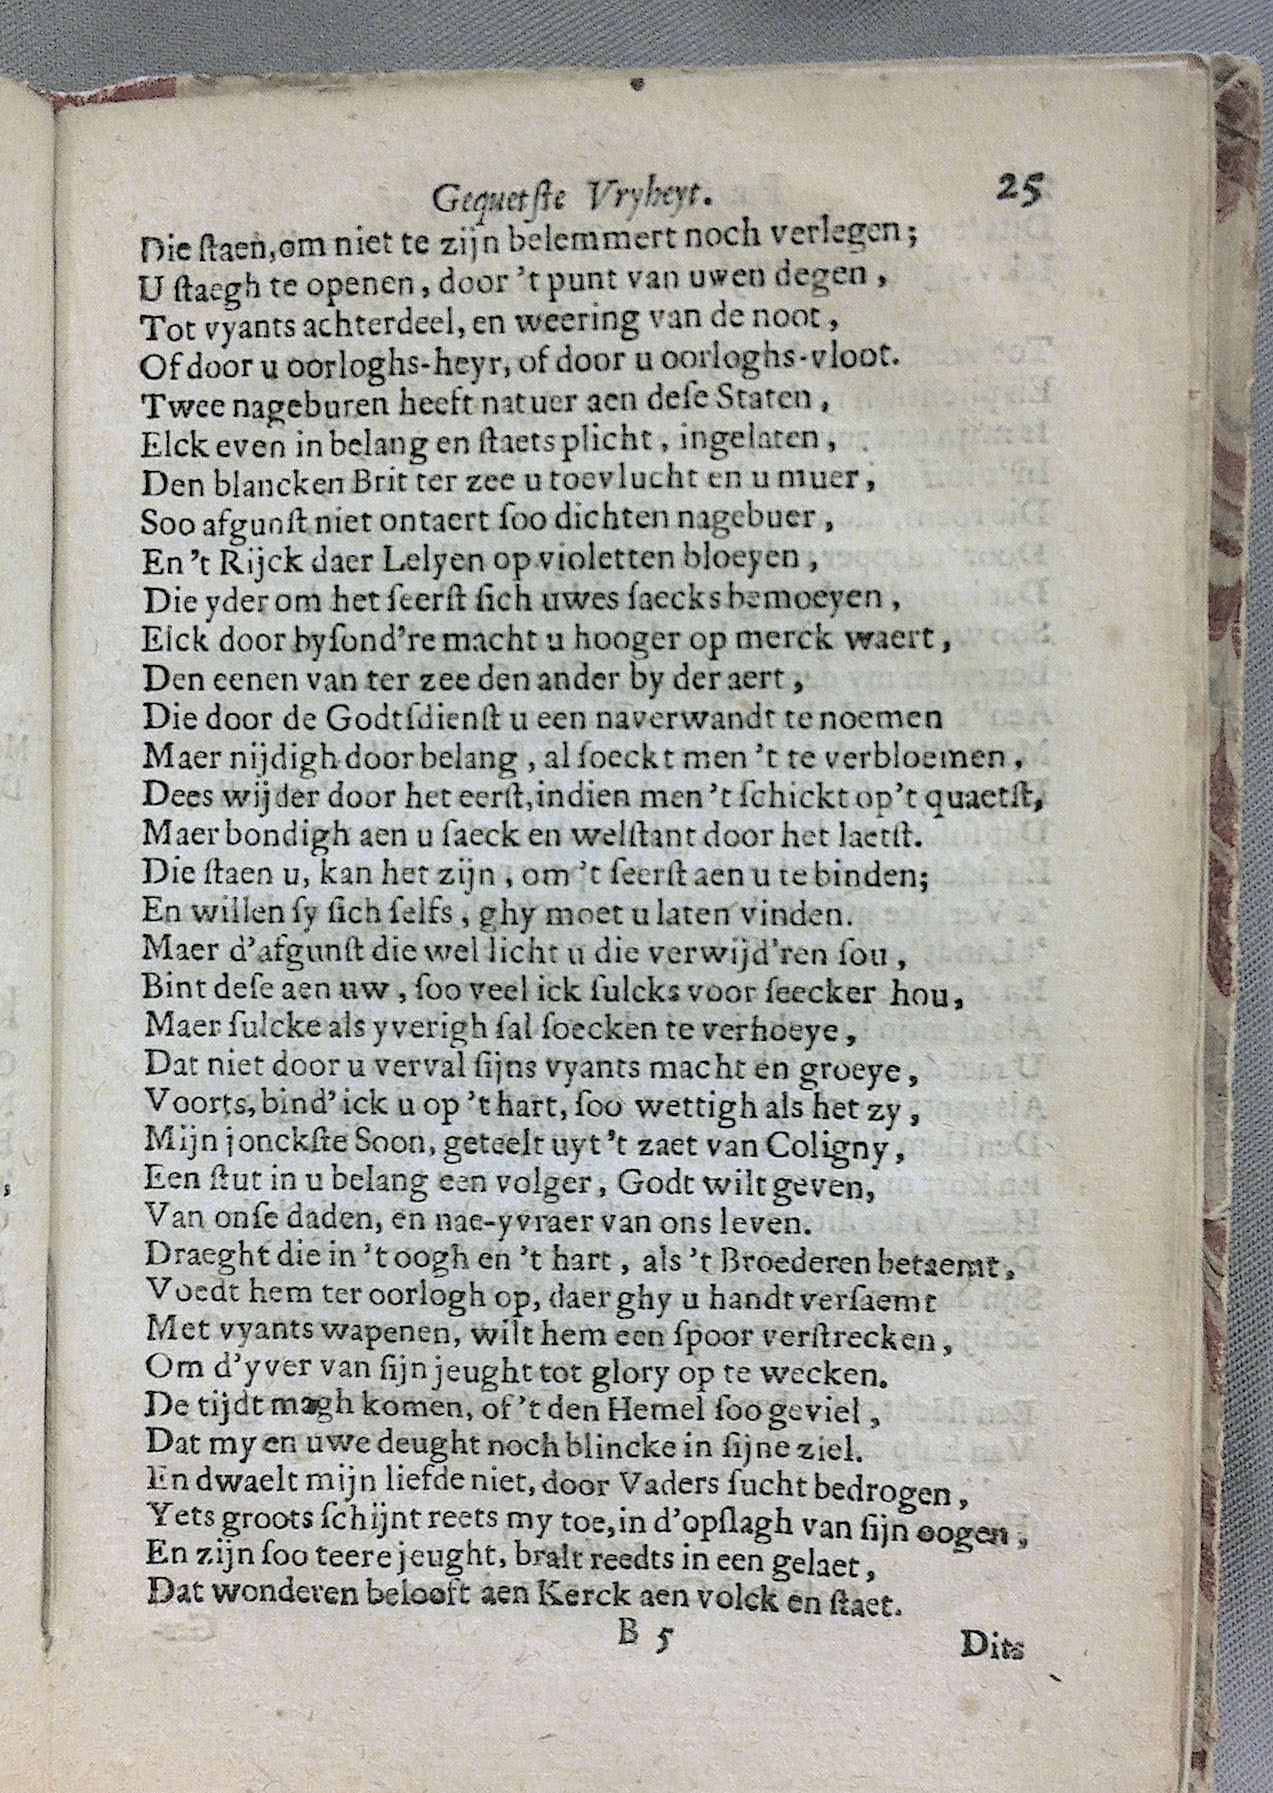 Gequetſte Vryheyt. 25
Die ſtaen, om niet te zijn belemmert noch verlegen;
U ſtaegh te openen, door 't punt van uwen degen,
Tot vyants achterdeel, en weering van de noot,
Of door u oorloghs-heyr, of door u oorloghs-vloot.
Twee nageburen heeft natuer aen deſe Staten,
Elck even in belang en ſtaets plicht, ingelaten,
Den blancken Brit ter zee u toevlucht en u muer,
Soo afgunſt niet ontaert ſoo dichten nagebuer,
En 't Rijck daer Lelyen op violetten bloeyen,
Die yder om het ſeerſt ſich uwes ſaecks bemoeyen,
Elck door byſond're macht u hooger op merck waert,
Den eenen van ter zee den ander by der aert,
Die door de Godtſdienſt u een naverwandt te noemen
Maer nijdigh door belang, al ſoeckt men 't te verbloemen,
Dees wijder door het eerſt, indien men 't ſchickt op 't quaetſt,
Maer bondigh aen u ſaeck en welſtant door het laetſt.
Die ſtaen u, kan het zijn, om 't ſeerſt aen u te binden;
En willen ſy ſich ſelfs, ghy moet u laten vinden.
Maer d'afgunſt die wel licht u die verwijd'ren ſou,
Bint deſe aen uw, ſoo veel ick ſulcks voor ſeecker hou,
Maer ſulcke als yverigh ſal ſoecken te verhoeye,
Dat niet door u verval ſijns vyants macht en groeye,
Voorts, bind' ick u op 't hart, ſoo wettigh als het zy,
Mijn jonckſte Soon, geteelt uyt 't zaet van Coligny,
Een ſtut in u belang een volger, Godt wilt geven,
Van onſe daden, en nae-yvraer van ons leven.
Draeght die in 't oogh en 't hart, als 't Broederen betaemt,
Voedt hem ter oorlogh op, daer ghy u handt verſaemt
Met vyants wapenen, wilt hem een ſpoor verſtrecken,
Om d'yver van ſijn jeught tot glory op te wecken.
De tijdt magh komen, of 't den Hemel ſoo geviel,
Dat my en uwe deught noch blincke in ſijne ziel.
En dwaelt mijn liefde niet, door Vaders ſucht bedrogen,
Yets groots ſchijnt reets my toe, in d'opſlagh van ſijn oogen,
En zijn ſoo teere jeught, bralt reedts in een gelaet,
Dat wonderen belooft aen Kerck aen volck en ſtaet.
B 5 Dits